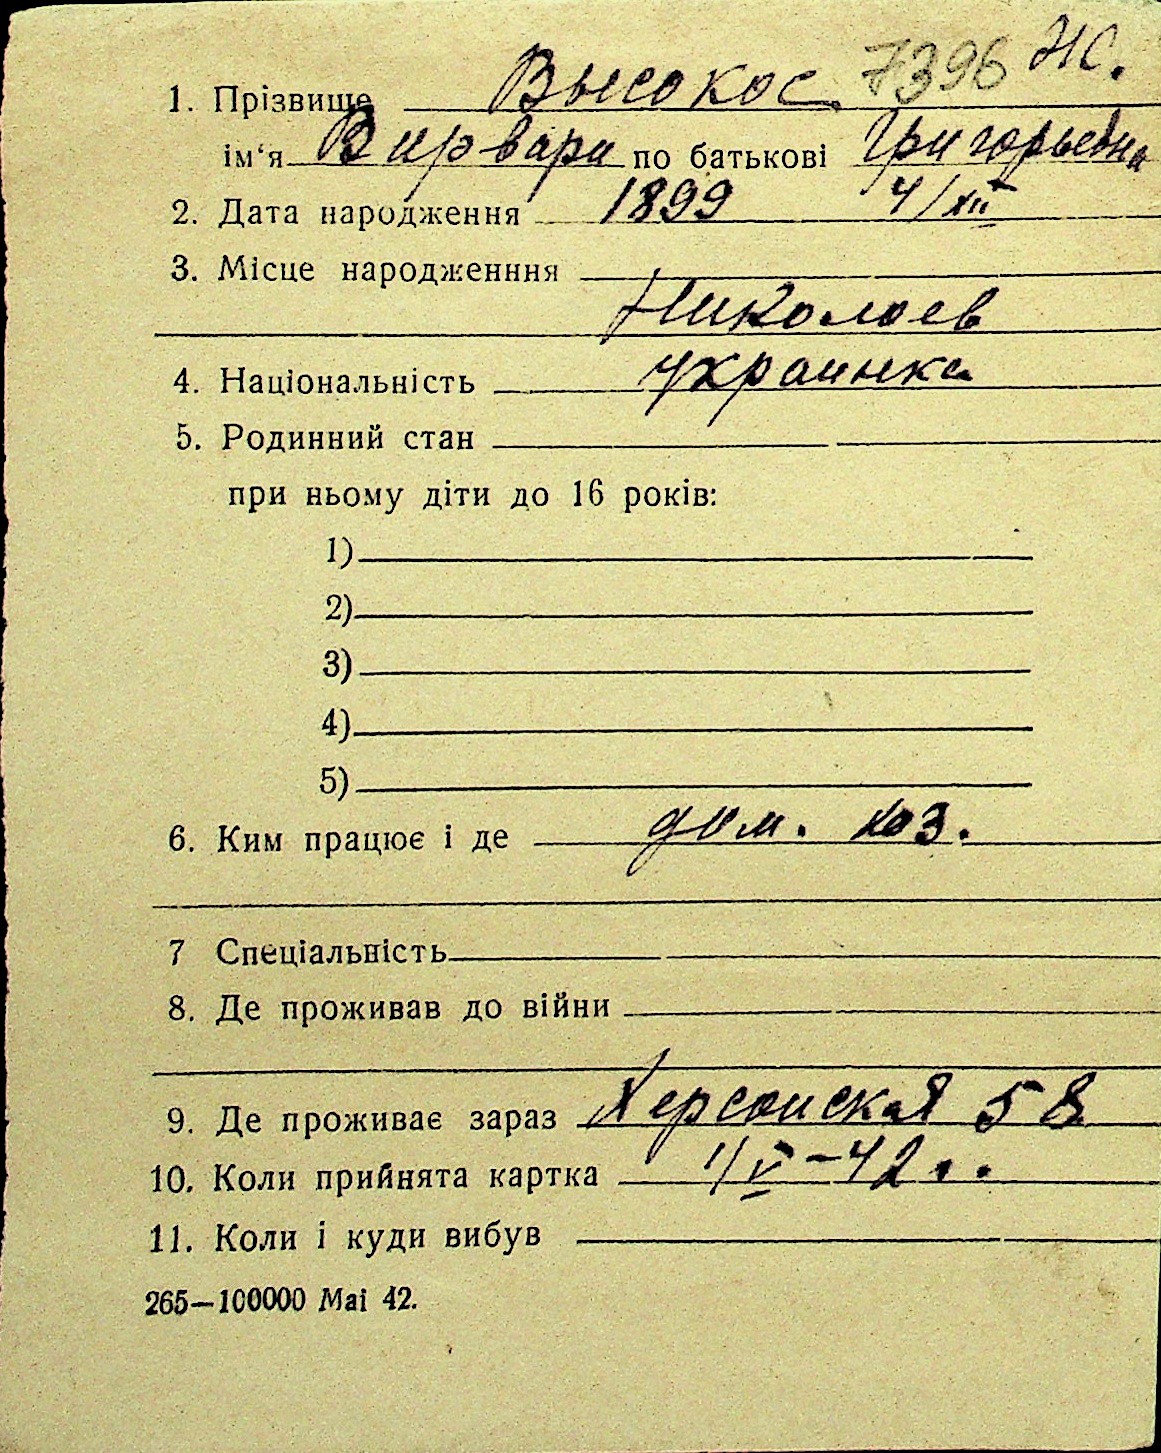 1. Прізвище Высокос 7396 Ж.
ім‘я Варвара по батькові Григорьевна
2. Дата народження 1899 4/XII
3. Місце народженння
Николаев
4. Національність украинка
5. Родинний стан
при ньому діти до 16 років:
1)
2)
3)
4)
5)
6. Ким працює і де дом. хоз.
7 Спеціальність
8. Де проживав до війни
9. Де проживає зараз Херсонская 58
10. Коли прийнята картка 1/V-42
11. Коли і куди вибув
265—100000 Mai 42.